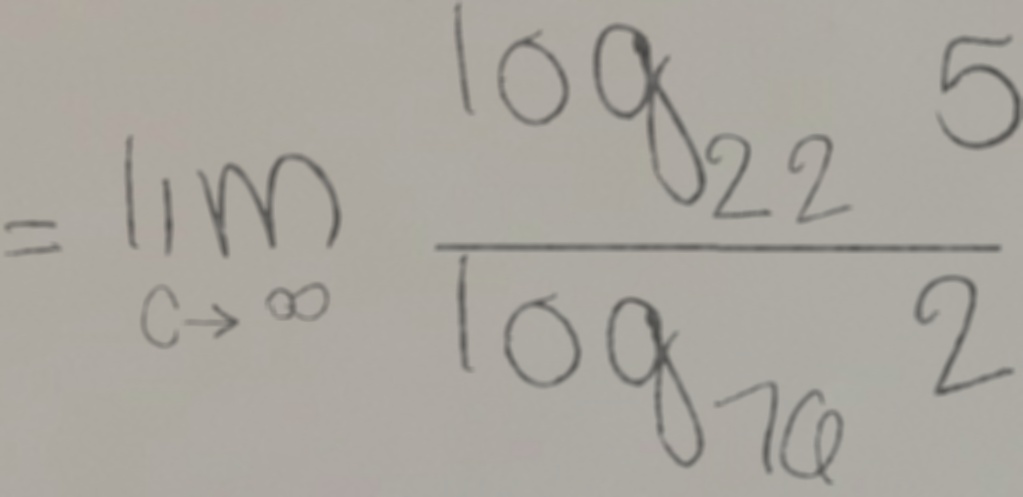 = lim c→∞ log₂₂ 5 / log₇₆ 2